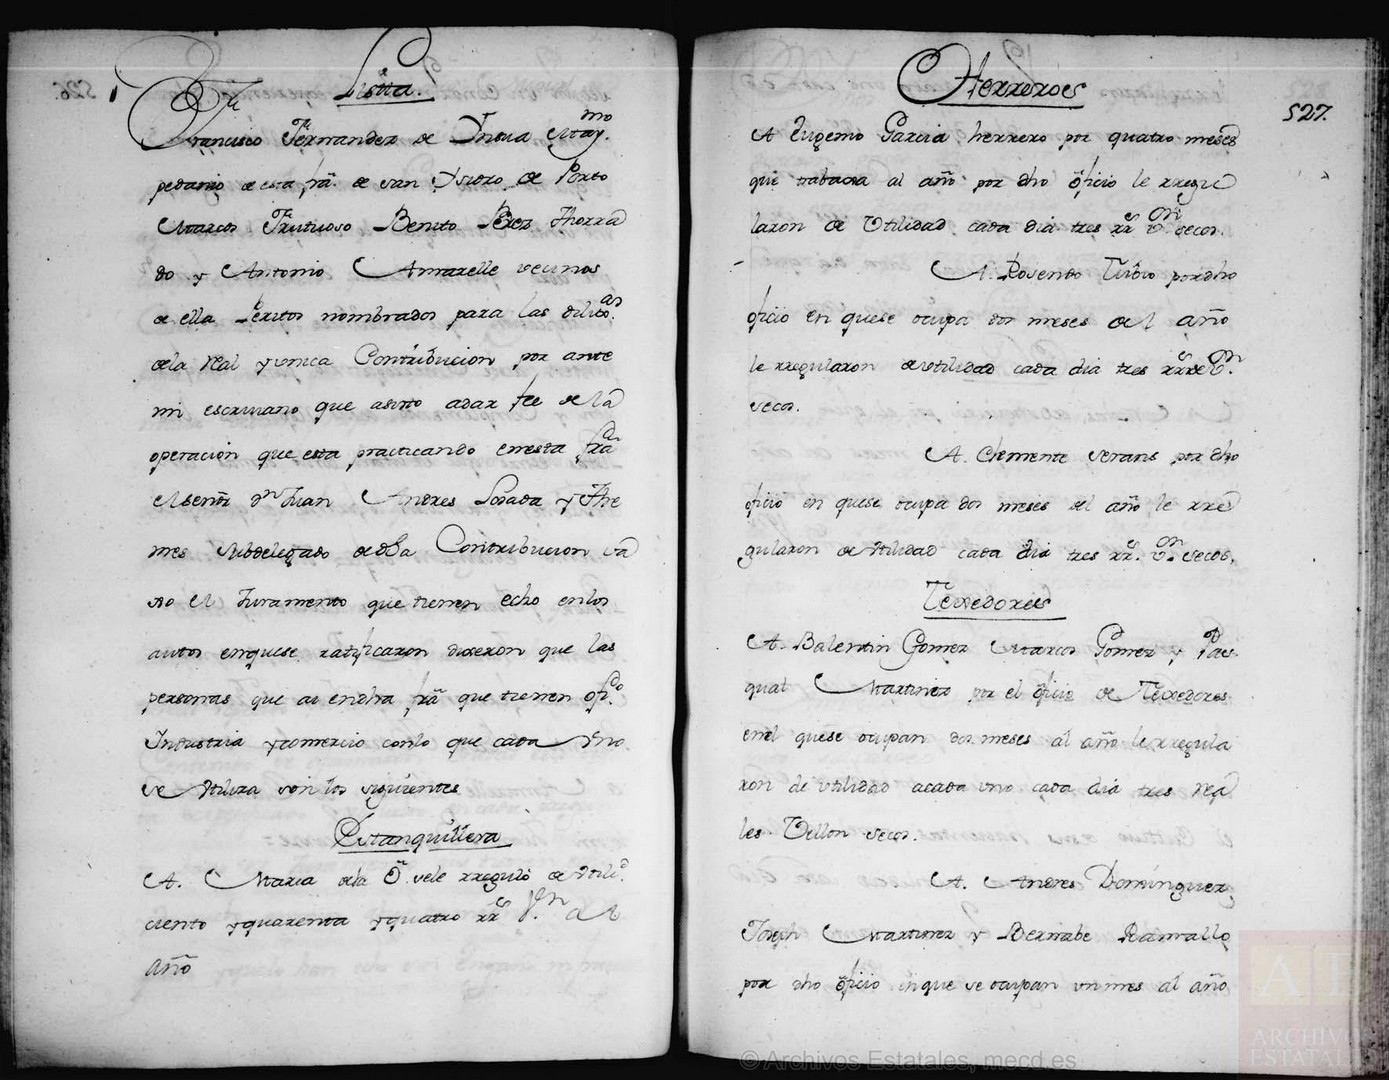 Listta.
Francisco Fernandez de Ynsua May.mo
pedanio de esta fra. de San Ysidro de Porto
Marcos Frutuoso Benito Perez Thorra
do y Antonio Amarelle vecinos
de ella Peritos nombrados para las dilixas.
de la Real y vnica Contribucion por ante
mi escrivano que asisto a dar fee de la
operacion que esta practicando en esta fra
el señor Dn Juan Andres Losada y The
mes Subdelegado de dha Contribucion va
xo el Juramento que tienen echo en los
autos en que se ratificaron dixeron que las
personas que ai en dha fra que tienen ofi.cio
Industria y comercio con lo que cada vno
se vtiliza son los siguientes
Estanquillera
A. Maria de la O. se le rregulo de vtilid.
ciento y quarenta y quatro rrs Vn. al
año
Herreroes
527.
A Eugenio Garcia herrero por quatro meses
que trabaxa al año por dho oficio le rregu
laron de Vtilidad cada dia tres rrs Von secos.
A. Rosendo Tubio por dho
oficio en que se ocupa dos meses del año
le rregularon de vtilidad cada dia tres rrs de Von.
secos.
A. Clemente Verans por dho
oficio en que se ocupa dos meses al año le rre
gularon de vtilidad cada dia tres rrs. Von. secos.
Texedores
A. Balentin Gomez Marcos Gomez y Pas
qual Martinez por el oficio de Texedores
en el que se ocupan dos meses al año le rregula
ron de vtilidad a cada vno cada dia tres rea
les Vellon secos.
A. Andres Dominguez
Joseph Martinez y Bernabe Ramallo
por dho oficio en que se ocupan vn mes al año
© Archivos Estatales, mecd.es
ARCHIVOS
ESTATALES